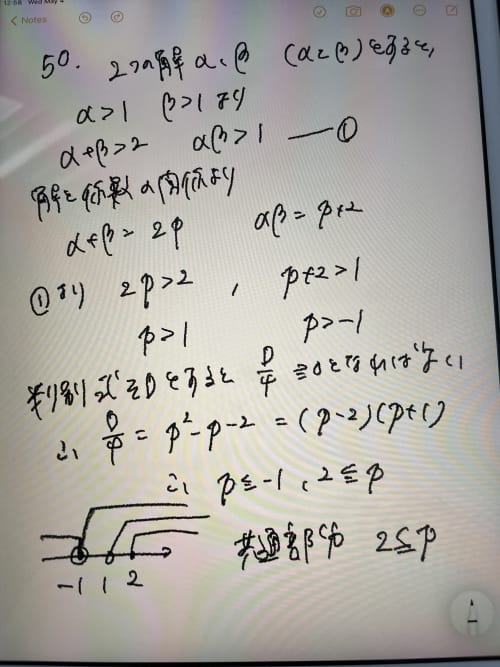 12:58 Wed May 4
Notes
50. 2つの解 α、β (α≧β)とすると、
α>1 β>1 より
α+β>2 αβ>1 ―①
解と係数の関係より
α+β=2p αβ=p+2
①より 2p>2 , p+2>1
p>1 p>-1
判別式をDとすると D/4 ≧0となればよい
∴ D/4 = p²-p-2 =(p-2)(p+1)
∴ p≦-1、2≦p
共通部分 2≦p
-1 1 2